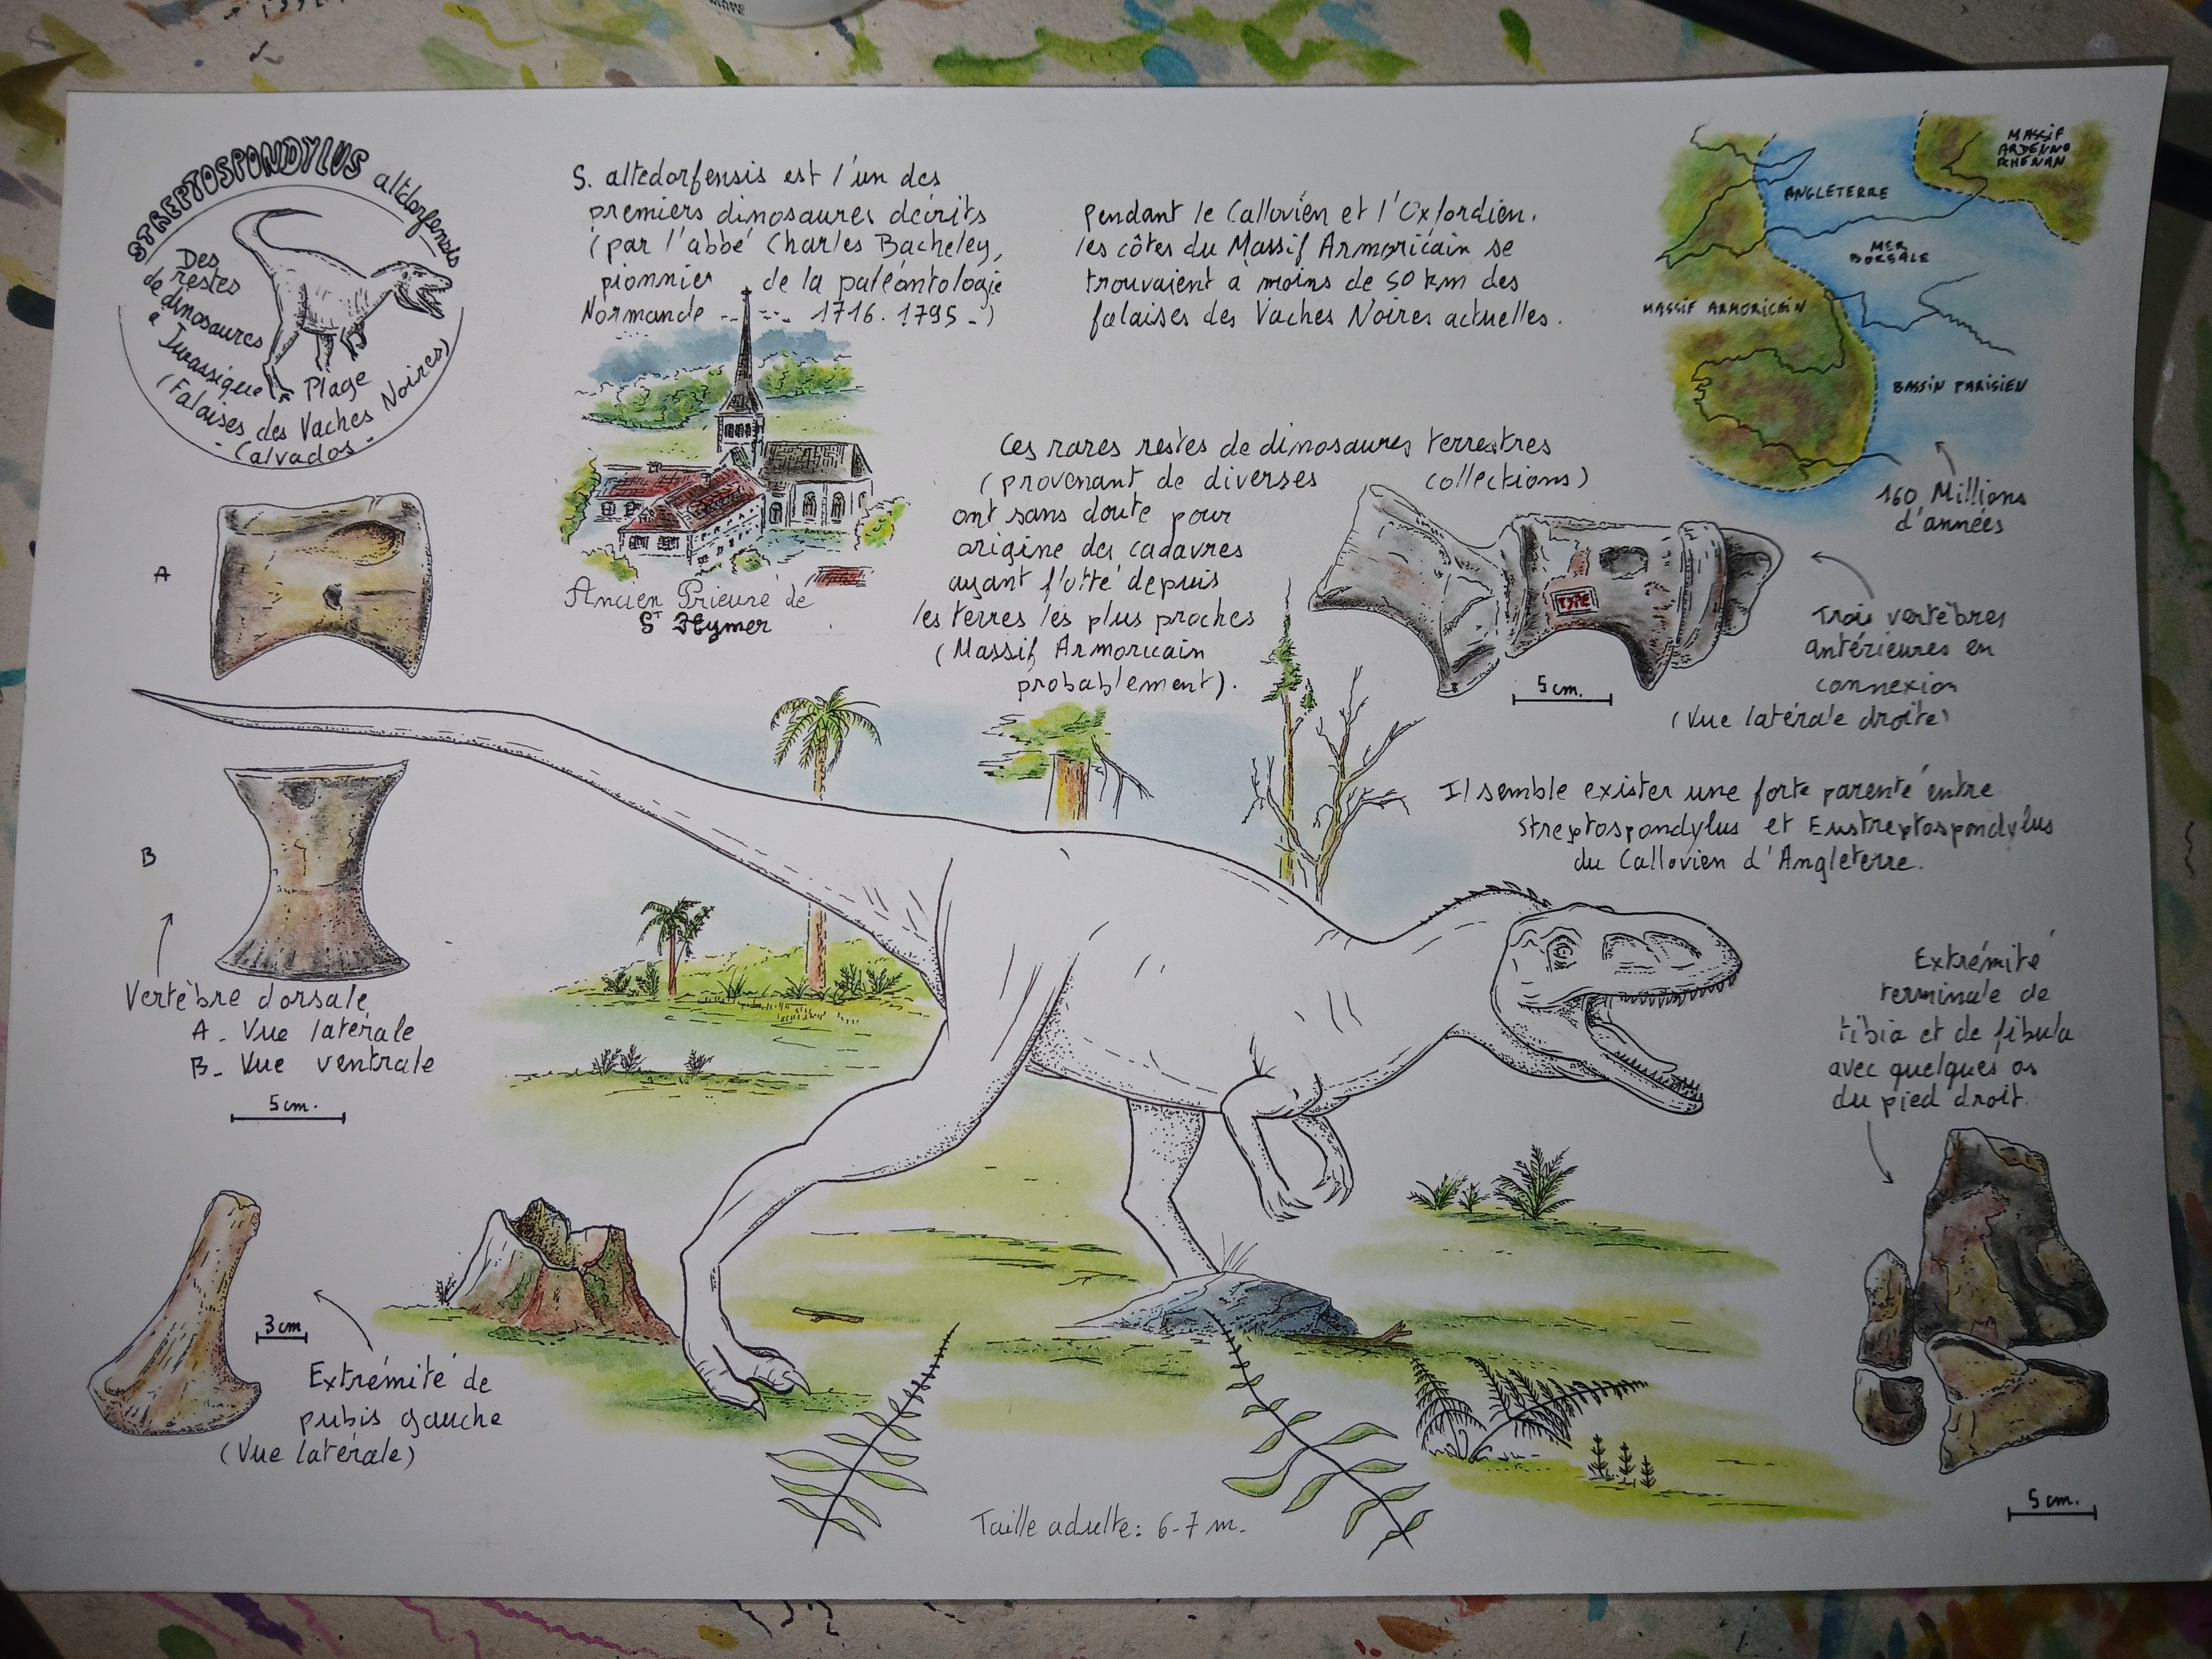 STREPTOSPONDYLUS altdorfensis
Des
restes
de dinosaures
à
Jurassique Plage
(Falaises des Vaches Noires)
- Calvados -
S. altedorfensis est l'un des
premiers dinosaures décrits
(par l'abbé Charles Bacheley,
pionnier de la paléontologie
Normande ----- 1716. 1795 -)
Ancien Prieuré de
St Hymer
pendant le Callovien et l'Oxfordien.
les côtes du Massif Armoricain se
trouvaient à moins de 50 km des
falaises des Vaches Noires actuelles.
MASSIF
ARDENNO
RHENAN
ANGLETERRE
MER
BORÉALE
MASSIF ARMORICAIN
BASSIN PARISIEN
160 Millions
d'années
Ces rares restes de dinosaures terrestres
(provenant de diverses collections)
ont sans doute pour
origine des cadavres
ayant flotté depuis
les terres les plus proches
(Massif Armoricain
probablement).
TYPE
5 cm.
Trois vertèbres
antérieures en
connexion
(Vue latérale droite)
Il semble exister une forte parenté entre
Streptospondylus et Eustreptospondylus
du Callovien d'Angleterre.
A
B
Vertèbre dorsale
A - Vue latérale
B - Vue ventrale
5 cm.
Extrémité
terminale de
tibia et de fibula
avec quelques os
du pied droit.
5 cm.
3 cm
Extrémité de
pubis gauche
(Vue latérale)
Taille adulte: 6-7 m.